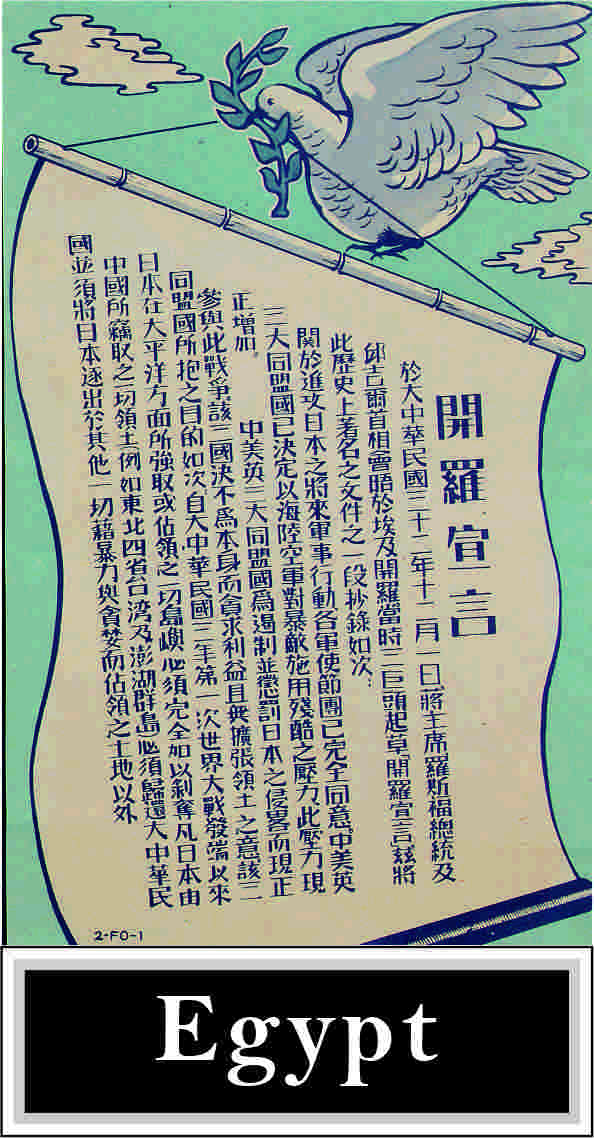 開羅宣言
於大中華民國三十二年十二月一日蔣主席羅斯福總統及
邱吉爾首相會晤於埃及開羅當時三巨頭起草「開羅宣言」茲將
此歷史上著名之文件之一段抄錄如次：
關於進攻日本之將來軍事行動各軍使節團已完全同意。中美英
三大同盟國已決定以海陸空軍對暴敵施用殘酷之壓力、此壓力現
正增加。 中美英三大同盟國為遏制並懲罰日本之侵畧而現正
參與此戰爭該三國決不為本身而貪求利益且無擴張領土之意該三
同盟國所抱之目的如次自大中華民國三年第一次世界大戰發端以來
日本在太平洋方面所強取或佔領之一切島嶼必須完全加以剝奪凡日本由
中國所竊取之一切領土(例如東北四省台湾及澎湖群島)必須歸還大中華民
國並須將日本逐出於其他一切藉暴力與貪婪而佔領之土地以外
2-FO-1
Egypt